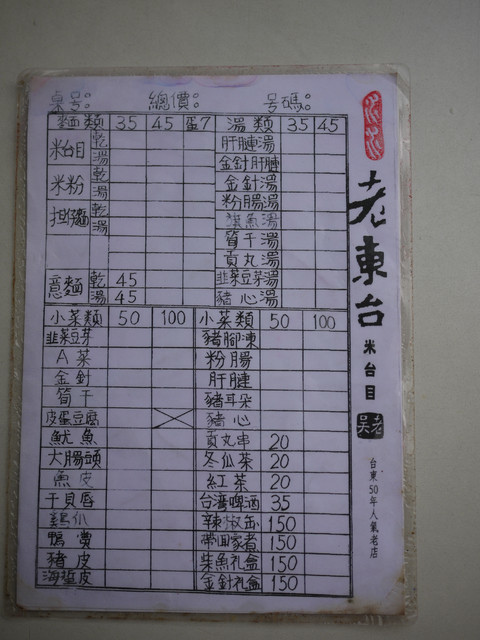 桌号: 總價: 号碼:
麵類 35 45 蛋7 湯類 35 45
米台目 乾 湯 肝腱湯
金針肝腱
米粉 乾 湯 金針湯
粉腸湯
担仔麵 乾 湯 旗魚湯
筍干湯
貢丸湯
意麵 乾 45 韭菜豆芽湯
湯 45 豬心湯
小菜類 50 100 小菜類 50 100
韭菜豆芽 豬腳凍
A菜 粉腸
金針 肝腱
筍干 豬耳朵
皮蛋豆腐 豬心
魷魚 貢丸串 20
大腸頭 冬瓜茶 20
魚皮 紅茶 20
干貝唇 台湾啤酒 35
鷄爪 辣椒缶 150
鴨賞 帶回家煮 150
豬皮 柴魚礼盒 150
海蜇皮 金針礼盒 150
老東台
米台目
老吳
台東50年人氣老店